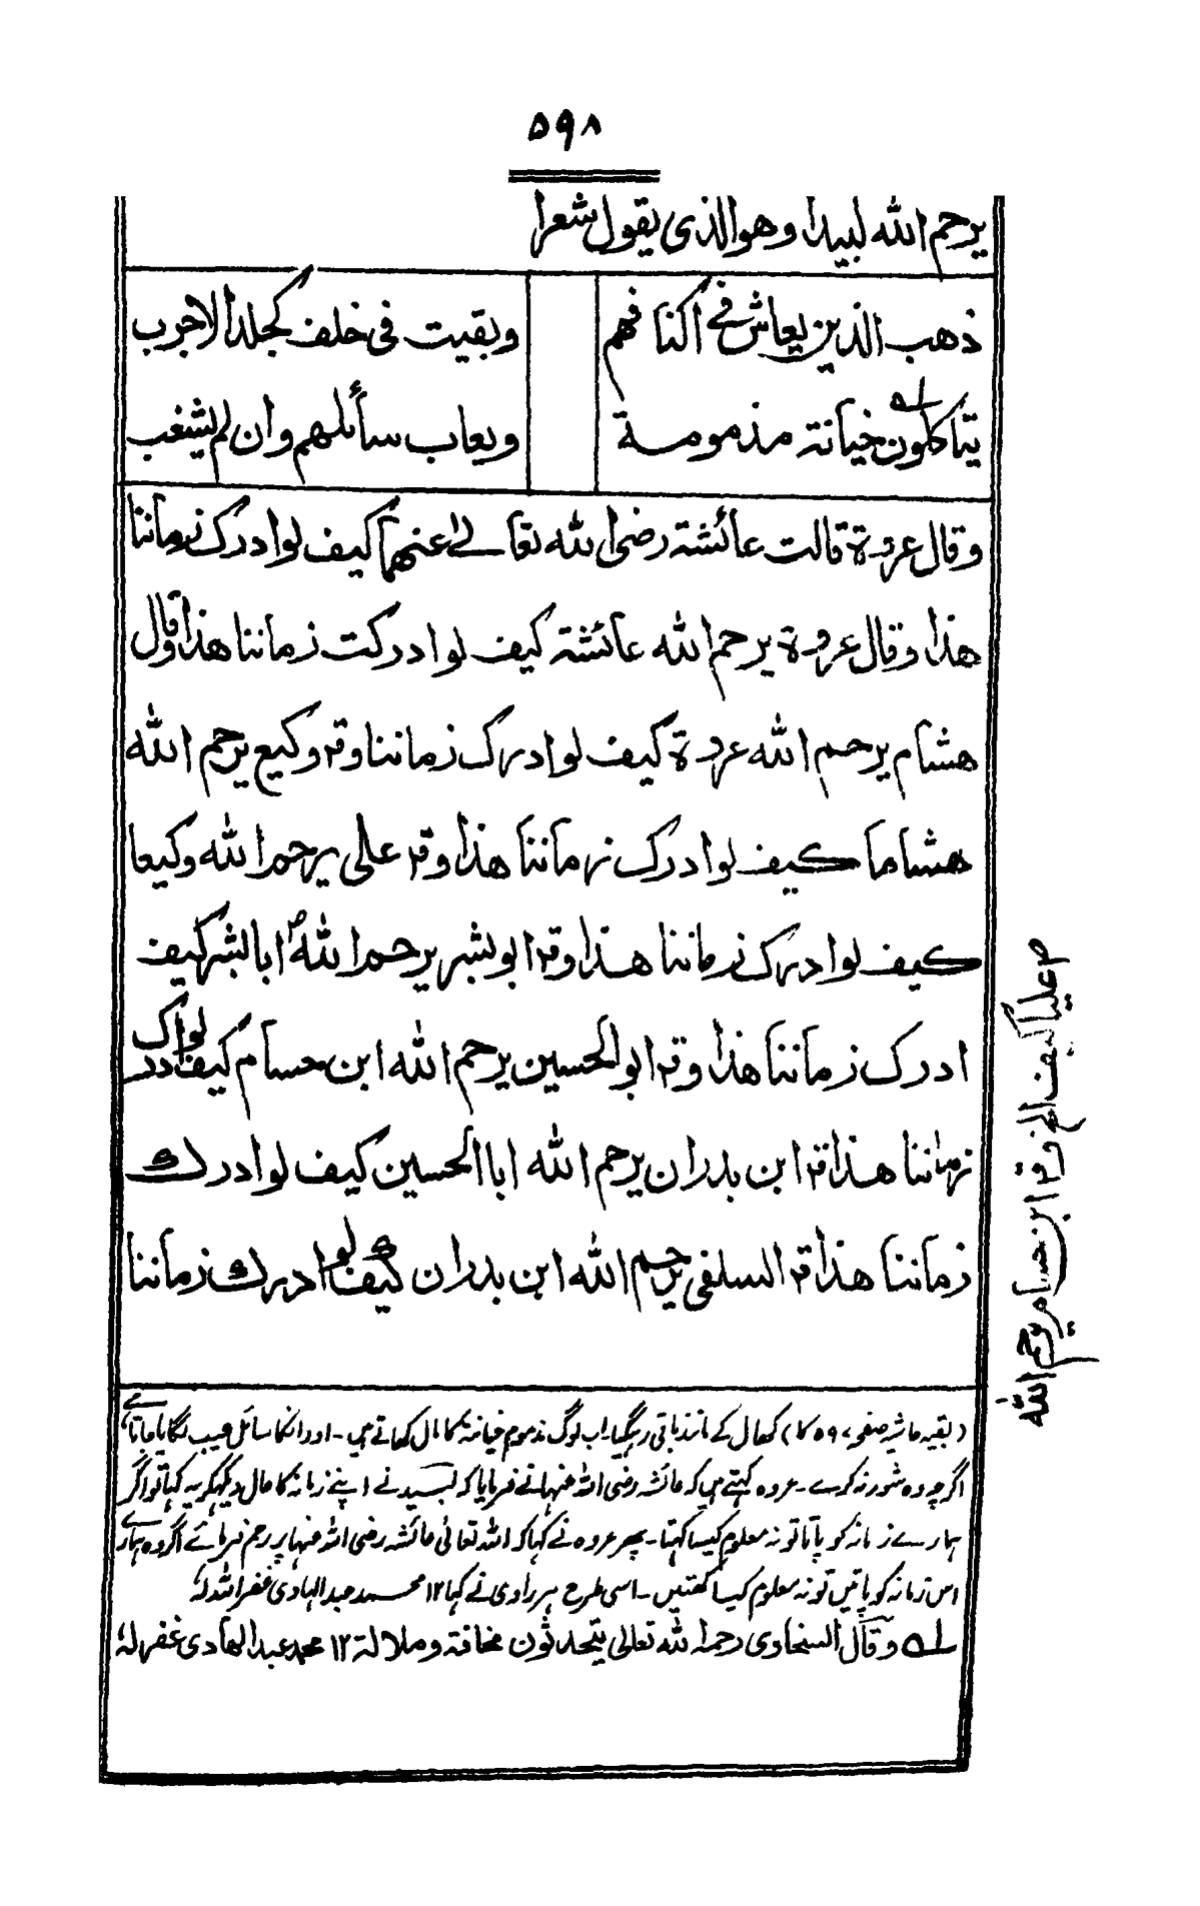 ۵۹۸
يرحم الله لبيدا وهو الذى يقول شعرا
ذهب الذين يعاش فے اكنافهم وبقيت فى خلف كجلد الاجرب
يتاكلون خيانة مذمومة ويعاب سائلهم وان لم يشغب
وقال عروة قالت عائشة رضى الله تعالے عنهما كيف لو ادرك زماننا
هذا وقال عروة يرحم الله عائشة كيف لو ادركت زماننا هذا وقال
هشام يرحم الله عروة كيف لو ادرك زماننا وقر وكيع يرحم الله
هشاما كيف لو ادرك زماننا هذا وقر على يرحم الله وكيعا
كيف لو ادرك زماننا هذا وقر ابو بشر يرحم الله ابا بشر كيف
ادرك زماننا هذا وقر ابو الحسين يرحم الله ابن حسام كيف لو ادرك
زماننا هذا قر ابن بدران يرحم الله ابا الحسين كيف لو ادرك
زماننا هذا قر السلفى يرحم الله ابن بدران كيف لو ادرك زماننا
عليا كيف الخ وقر ابن حسام يرحم الله
(بقیہ حاشیہ صفحہ ۵۹۷ کا) کھال کے مانند باقی رہ گیا۔ اب لوگ مذموم خیانۃ کا مال کھاتے ہیں۔ اور انکا سائل عیب لگایا جاتا ہے
اگرچہ وہ شور نہ کرے۔ عروہ کہتے ہیں کہ عائشہ رضی اللہ عنہا نے فرمایا کہ لبید نے اپنے زمانہ کا حال دیکھکر یہ کہا تو اگر
ہمارے زمانہ کو پاتا تو نہ معلوم کیسا کہتا۔ پھر عروہ نے کہا کہ اللہ تعالی عائشہ رضی اللہ عنہا پر رحم فرمائے اگر وہ ہمارے
اس زمانہ کو پاتیں تو نہ معلوم کیسا کہتیں۔ اسی طرح ہر راوی نے کہا ۱۲ محمد عبد الہادی غفر اللہ لہٗ
لے وقال السخاوى رحمه الله تعالى يتحدثون مخافة وملالة ۱۲ محمد عبد الهادى غفر له